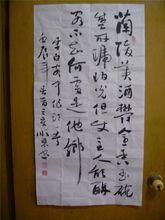 蘭陵美酒鬱金香玉碗
盛來琥珀光但使主人能醉
客不知何處是他鄉
李白
年